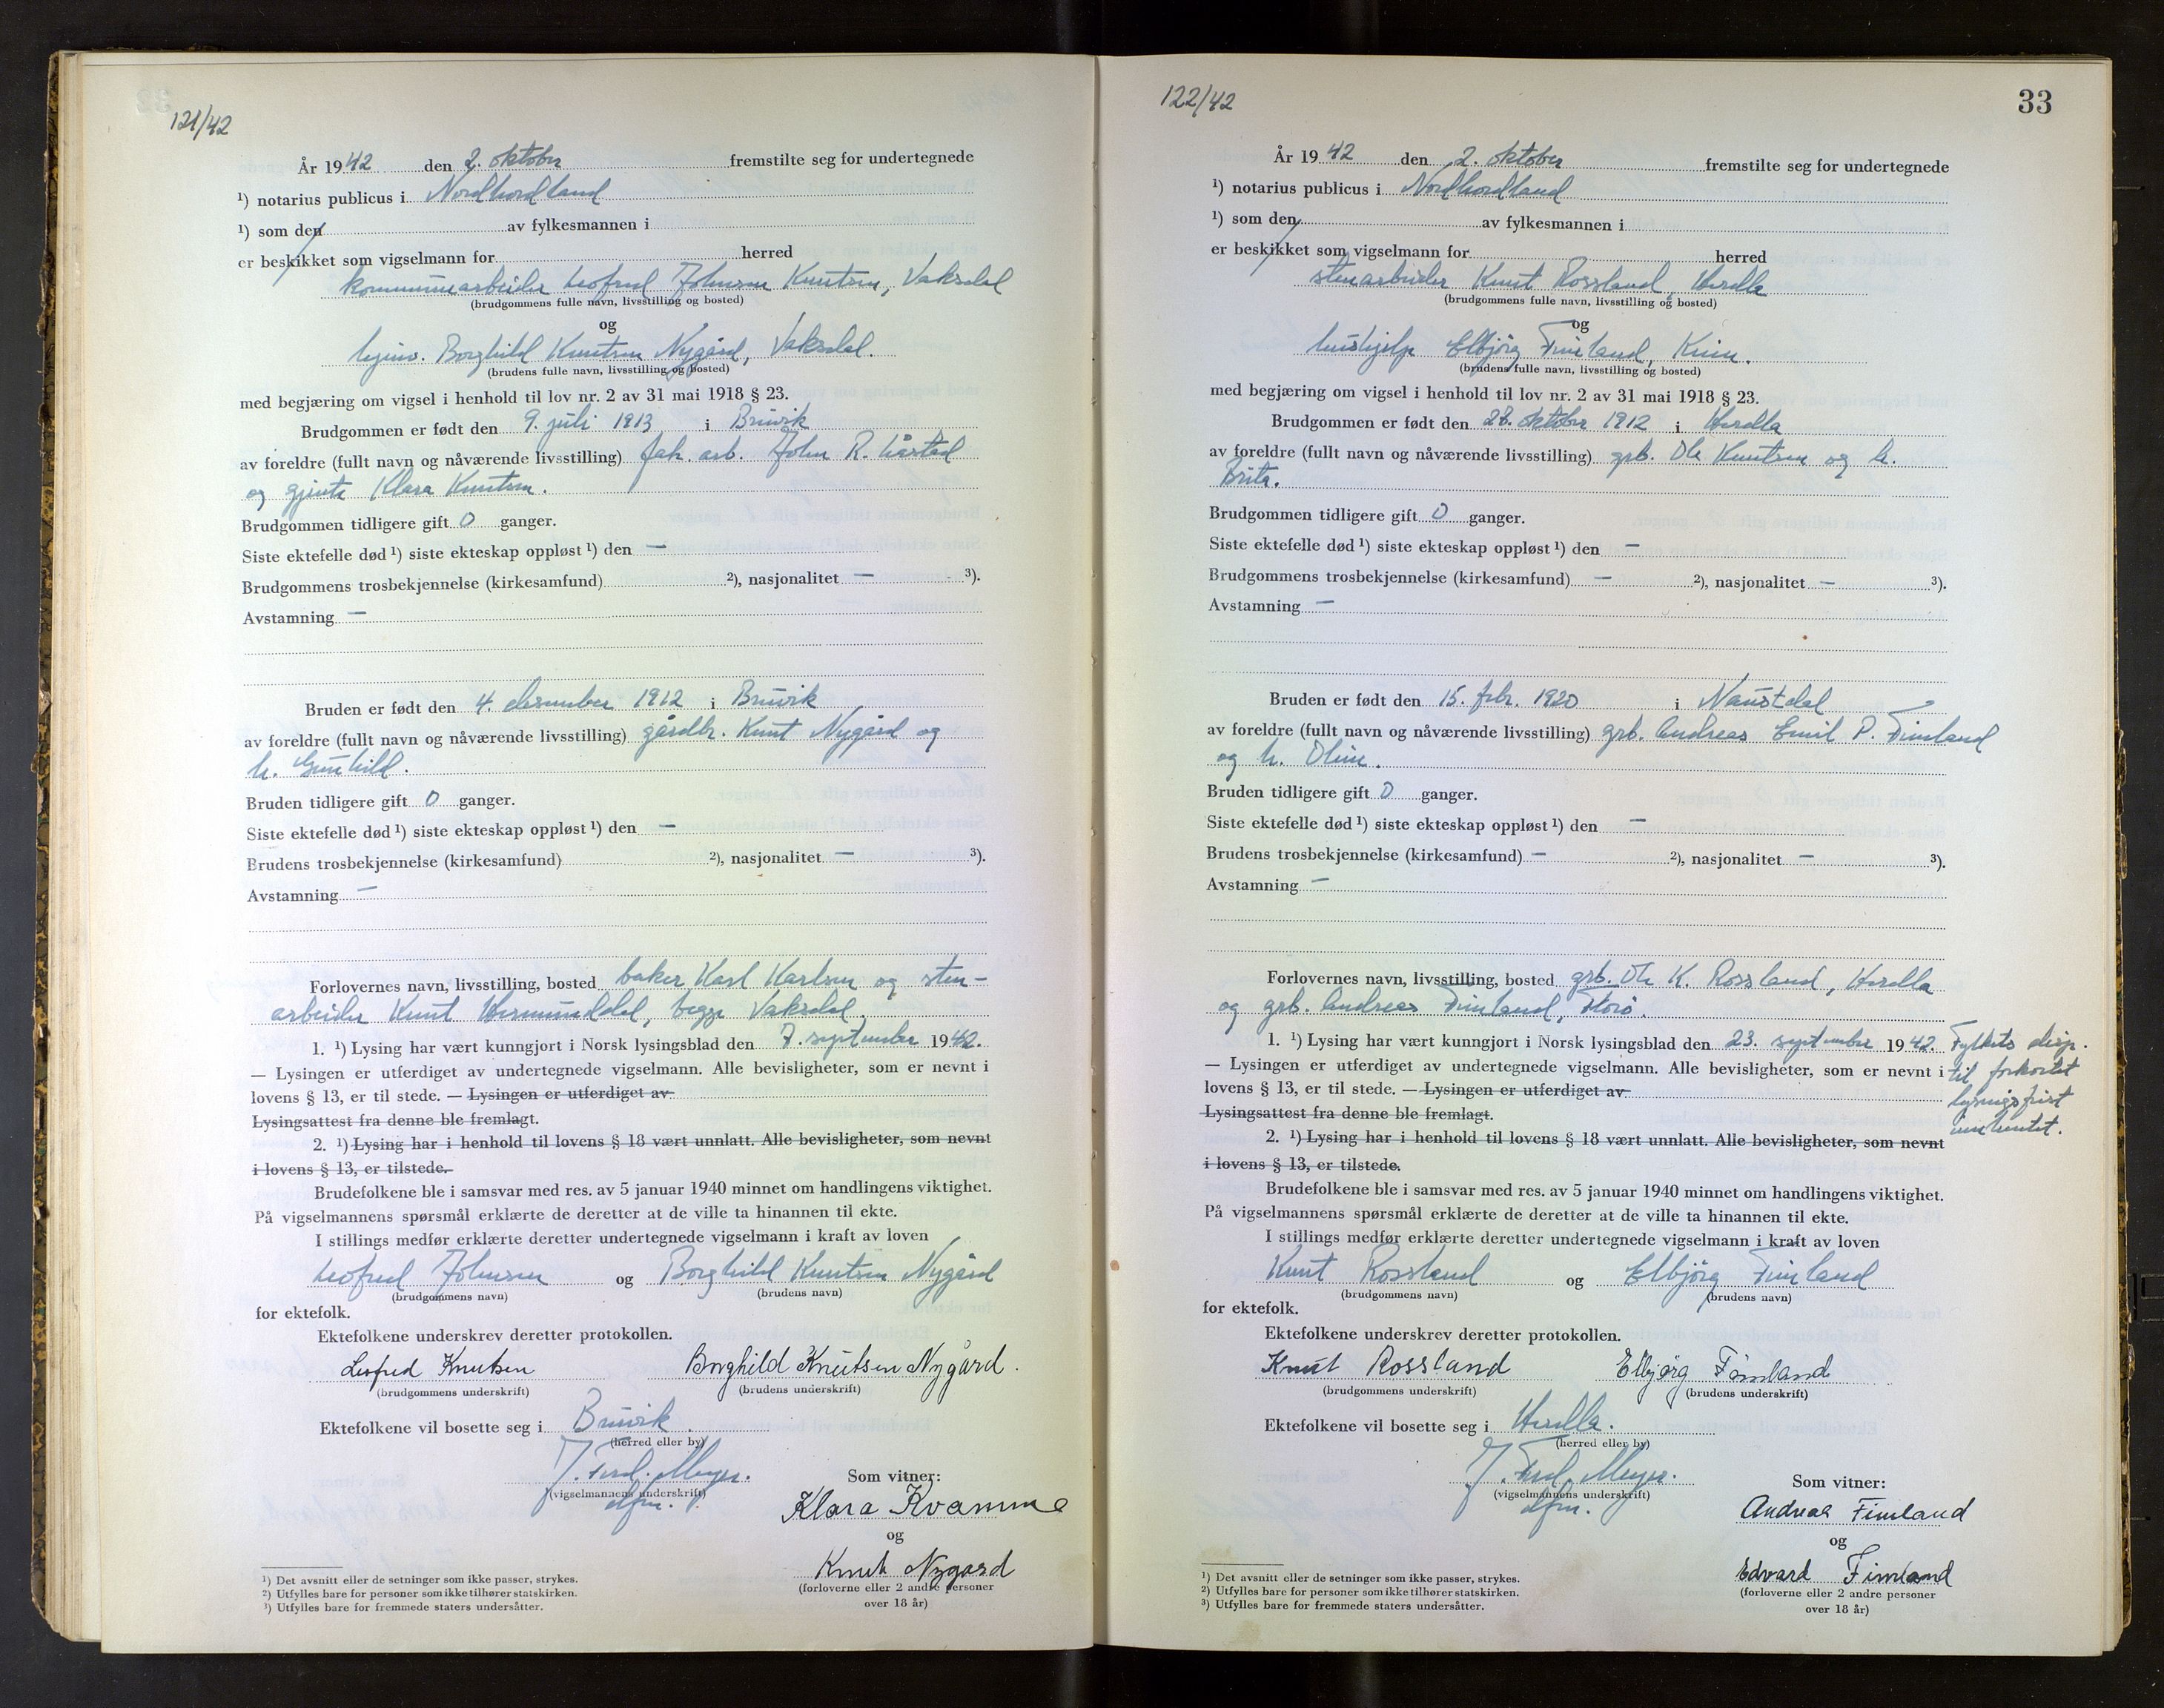 121/42
År 1942 den 2. oktober fremstilte seg for undertegnede
¹) notarius publicus i Nordhordland
¹) som den av fylkesmannen i
er beskikket som vigselmann for herred
kommunearbeider Leofred Johnsen Knutsen, Vaksdal
(brudgommens fulle navn, livsstilling og bosted)
og
hjemv. Borghild Knutsen Nygård, Vaksdal.
(brudens fulle navn, livsstilling og bosted)
med begjæring om vigsel i henhold til lov nr. 2 av 31 mai 1918 § 23.
Brudgommen er født den 9. juli 1913 i Bruvik
av foreldre (fullt navn og nåværende livsstilling) fab. arb. John R. Lårstad
og gjente Klara Knutsen.
Brudgommen tidligere gift 0 ganger.
Siste ektefelle død ¹) siste ekteskap oppløst ¹) den —
Brudgommens trosbekjennelse (kirkesamfund) ²), nasjonalitet — ³).
Avstamning —
Bruden er født den 4. desember 1912 i Bruvik
av foreldre (fullt navn og nåværende livsstilling) gårdbr. Knut Nygård og
h. Gunhild.
Bruden tidligere gift 0 ganger.
Siste ektefelle død ¹) siste ekteskap oppløst ¹) den —
Brudens trosbekjennelse (kirkesamfund) ²), nasjonalitet — ³).
Avstamning —
Forlovernes navn, livsstilling, bosted baker Karl Karlsen og sten-
arbeider Knut Hermundsdal, begge Vaksdal.
1. ¹) Lysing har vært kunngjort i Norsk lysingsblad den 7. september 1942.
— Lysingen er utferdiget av undertegnede vigselmann. Alle bevisligheter, som er nevnt i
lovens § 13, er til stede. — Lysingen er utferdiget av
Lysingsattest fra denne ble fremlagt.
2. ¹) Lysing har i henhold til lovens § 18 vært unnlatt. Alle bevisligheter, som nevnt
i lovens § 13, er tilstede.
Brudefolkene ble i samsvar med res. av 5 januar 1940 minnet om handlingens viktighet.
På vigselmannens spørsmål erklærte de deretter at de ville ta hinannen til ekte.
I stillings medfør erklærte deretter undertegnede vigselmann i kraft av loven
Leofred Johnsen og Borghild Knutsen Nygård
(brudgommens navn) (brudens navn)
for ektefolk.
Ektefolkene underskrev deretter protokollen.
Leofred Knutsen Borghild Knutsen Nygård.
(brudgommens underskrift) (brudens underskrift)
Ektefolkene vil bosette seg i Bruvik.
(herred eller by)
J. Ferd. Meyer.
(vigselmannens underskrift)
dfm.
Som vitner:
Klara Kvamme
og
Knut Nygard
(forloverne eller 2 andre personer
over 18 år)
¹) Det avsnitt eller de setninger som ikke passer, strykes.
²) Utfylles bare for personer som ikke tilhører statskirken.
³) Utfylles bare for fremmede staters undersåtter.
122/42
33
År 1942 den 2. oktober fremstilte seg for undertegnede
¹) notarius publicus i Nordhordland
¹) som den av fylkesmannen i
er beskikket som vigselmann for herred
stenarbeider Knut Rossland, Herdla
(brudgommens fulle navn, livsstilling og bosted)
og
hushjelp Elbjörg Fimland, Kinn.
(brudens fulle navn, livsstilling og bosted)
med begjæring om vigsel i henhold til lov nr. 2 av 31 mai 1918 § 23.
Brudgommen er født den 28. oktober 1912 i Herdla
av foreldre (fullt navn og nåværende livsstilling) grb. Ole Knutsen og h.
Brita.
Brudgommen tidligere gift 0 ganger.
Siste ektefelle død ¹) siste ekteskap oppløst ¹) den —
Brudgommens trosbekjennelse (kirkesamfund) — ²), nasjonalitet — ³).
Avstamning —
Bruden er født den 15. febr. 1920 i Naustdal
av foreldre (fullt navn og nåværende livsstilling) grb. Andreas Emil P. Fimland
og h. Oline.
Bruden tidligere gift 0 ganger.
Siste ektefelle død ¹) siste ekteskap oppløst ¹) den —
Brudens trosbekjennelse (kirkesamfund) — ²), nasjonalitet — ³).
Avstamning —
Forlovernes navn, livsstilling, bosted grb. Ole K. Rossland, Herdla
og grb. Andreas Fimland, Florø.
1. ¹) Lysing har vært kunngjort i Norsk lysingsblad den 23. september 1942. Fylkets disp.
— Lysingen er utferdiget av undertegnede vigselmann. Alle bevisligheter, som er nevnt i til forkortet
lovens § 13, er til stede. — Lysingen er utferdiget av lysingsfrist
Lysingsattest fra denne ble fremlagt. innhentet.
2. ¹) Lysing har i henhold til lovens § 18 vært unnlatt. Alle bevisligheter, som nevnt
i lovens § 13, er tilstede.
Brudefolkene ble i samsvar med res. av 5 januar 1940 minnet om handlingens viktighet.
På vigselmannens spørsmål erklærte de deretter at de ville ta hinannen til ekte.
I stillings medfør erklærte deretter undertegnede vigselmann i kraft av loven
Knut Rossland og Elbjörg Fimland
(brudgommens navn) (brudens navn)
for ektefolk.
Ektefolkene underskrev deretter protokollen.
Knut Rossland Elbjørg Fimland
(brudgommens underskrift) (brudens underskrift)
Ektefolkene vil bosette seg i Herdla.
(herred eller by)
J. Ferd. Meyer.
(vigselmannens underskrift)
dfm.
Som vitner:
Andreas Fimland
og
Edvard Fimland
(forloverne eller 2 andre personer
over 18 år)
¹) Det avsnitt eller de setninger som ikke passer, strykes.
²) Utfylles bare for personer som ikke tilhører statskirken.
³) Utfylles bare for fremmede staters undersåtter.